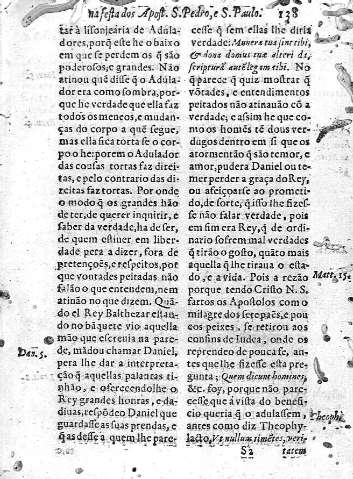 na festa dos Apost. S. Pedro, e S. Paulo. 138
tar à lisonjearia de Adula-
dores, porq̃ este he o baixo
em que se perdem os q̃ são
poderosos, e grandes. Não
atinou quẽ disse q̃ o Adula-
dor era como sombra, por-
que he verdade que ella faz
todos os meneos, e mudan-
ças do corpo a quẽ segue,
mas ella fica torta se o cor-
po o he: porem o Adulador
das cousas tortas faz direi-
tas, e pelo contrario das di-
reitas faz tortas. Por onde
o modo q̃ os grandes hão
de ter, de querer inquirir, e
saber da verdade, ha de ser,
de quem estiuer em liber-
dade pera a dizer, fora de
pretenções, e respeitos, por
que vontades peitadas não
falão o que entendem, nem
atinão no que dizem. Quã-
do el Rey Balthezar estan-
do no bãquete vio aquella
mão que escreuia na pare-
de, mãdou chamar Daniel,
Dan. 5.
pera lhe dar a interpreta-
ção q̃ aquellas palauras ti-
nhão, e oferecendolhe o
Rey grandes honras, e da-
diuas, respõdeo Daniel que
guardasse as suas prendas, e
q̃ as desse a quem lhe pare-
cesse q̃ sem ellas lhe diria
verdade: Munera tua sint tibi,
& dona domus tuæ alteri da,
scripturã autẽ legam tibi. No
q̃ parece q̃ quiz mostrar q̃
võtades, e entendimentos
peitados não atinauão cõ a
verdade, e assim he que co-
mo os homẽs tẽ dous ver-
dugos dentro em si que os
atormentão q̃ são temor, e
amor, pudera Daniel ou te-
mer perder a graça do Rey,
ou afeiçoarse ao prometi-
do, de sorte, q̃ isso lhe fizes-
se não falar verdade, pois
em fim era Rey, q̃ de ordi-
nario sofrem mal verdades
q̃ tirão o gosto, quãto mais
aquella q̃ lhe tiraua o esta-
do, e a vida. Pois a rezão
Matt. 15.
porque tendo Cristo N. S.
fartos os Apostolos com o
milagre dos sete paẽs, e pou
cos peixes, se retirou aos
confins de Iudea, onde os
reprendeo de pouca fe, an-
tes que lhe fizesse esta pre-
gunta; Quem dicunt homines,
&c. foy, porque não pare-
cesse que à vista do benefi-
cio queria q̃ o adulassem,
Theophi.
antes como diz Theophy-
lacto, Vt nullum timẽtes, veri-
S 2 tatem